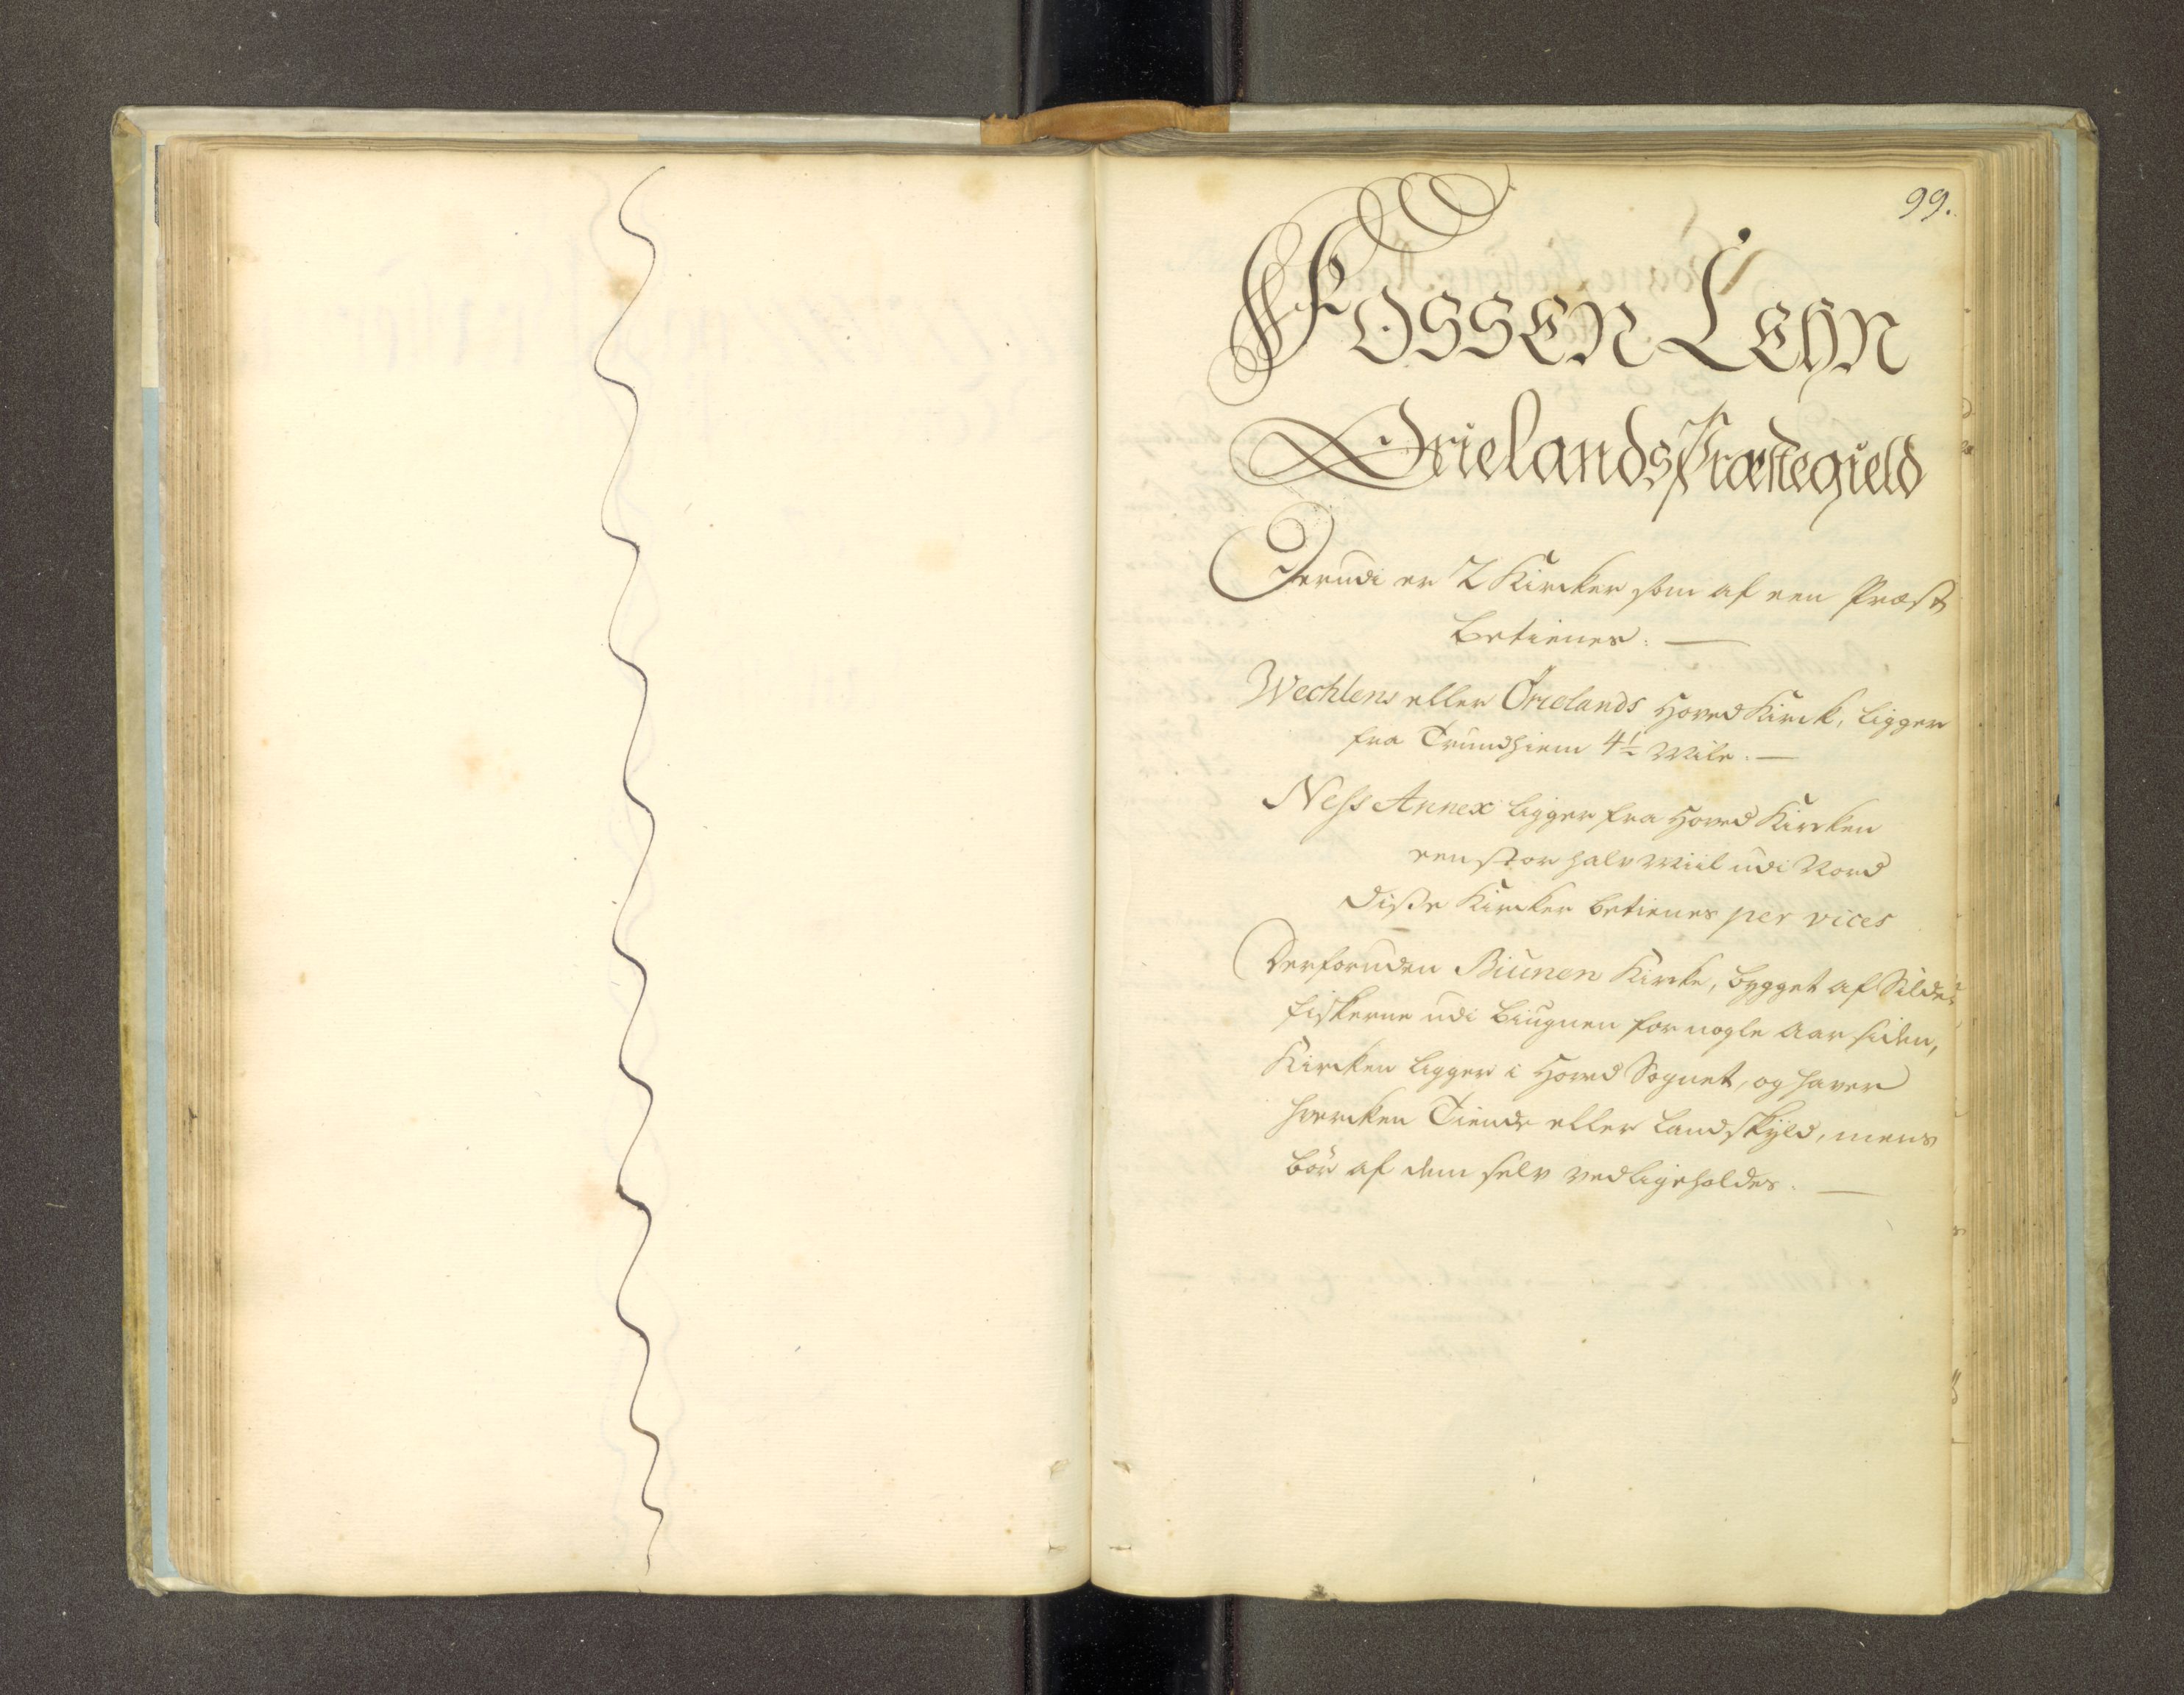 99.
Fossen Lehn
Ørielands Præstegield
Derudi er 2 Kircker som af een Præst
betienes. —
Wechlens eller Ørielands Hoved Kirck, ligger
fra Trundhiem 4½ Mile. —
Ness Annex ligger fra Hoved Kircken
een stor halv Miil udi Nord
Disse Kircker betienes per vices
Derforuden Biunen Kircke, bygget af Silde
fiskerne udi Biugnen for nogle Aar siden,
Kircken ligger i Hoved Sognet, og haver
hvercken Tiende eller Landskyld, mens
bör af dem selv vedligeholdes. —